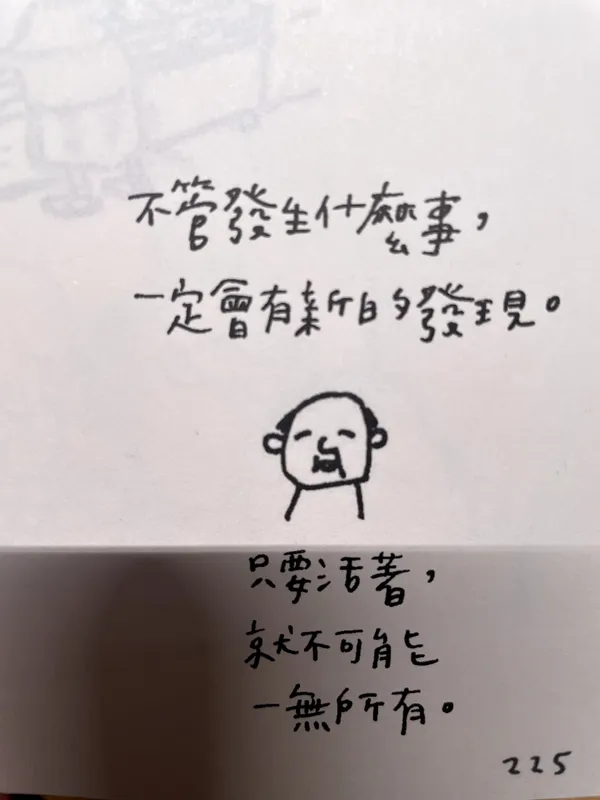 不管發生什麼事，
一定會有新的發現。
只要活著，
就不可能
一無所有。
225